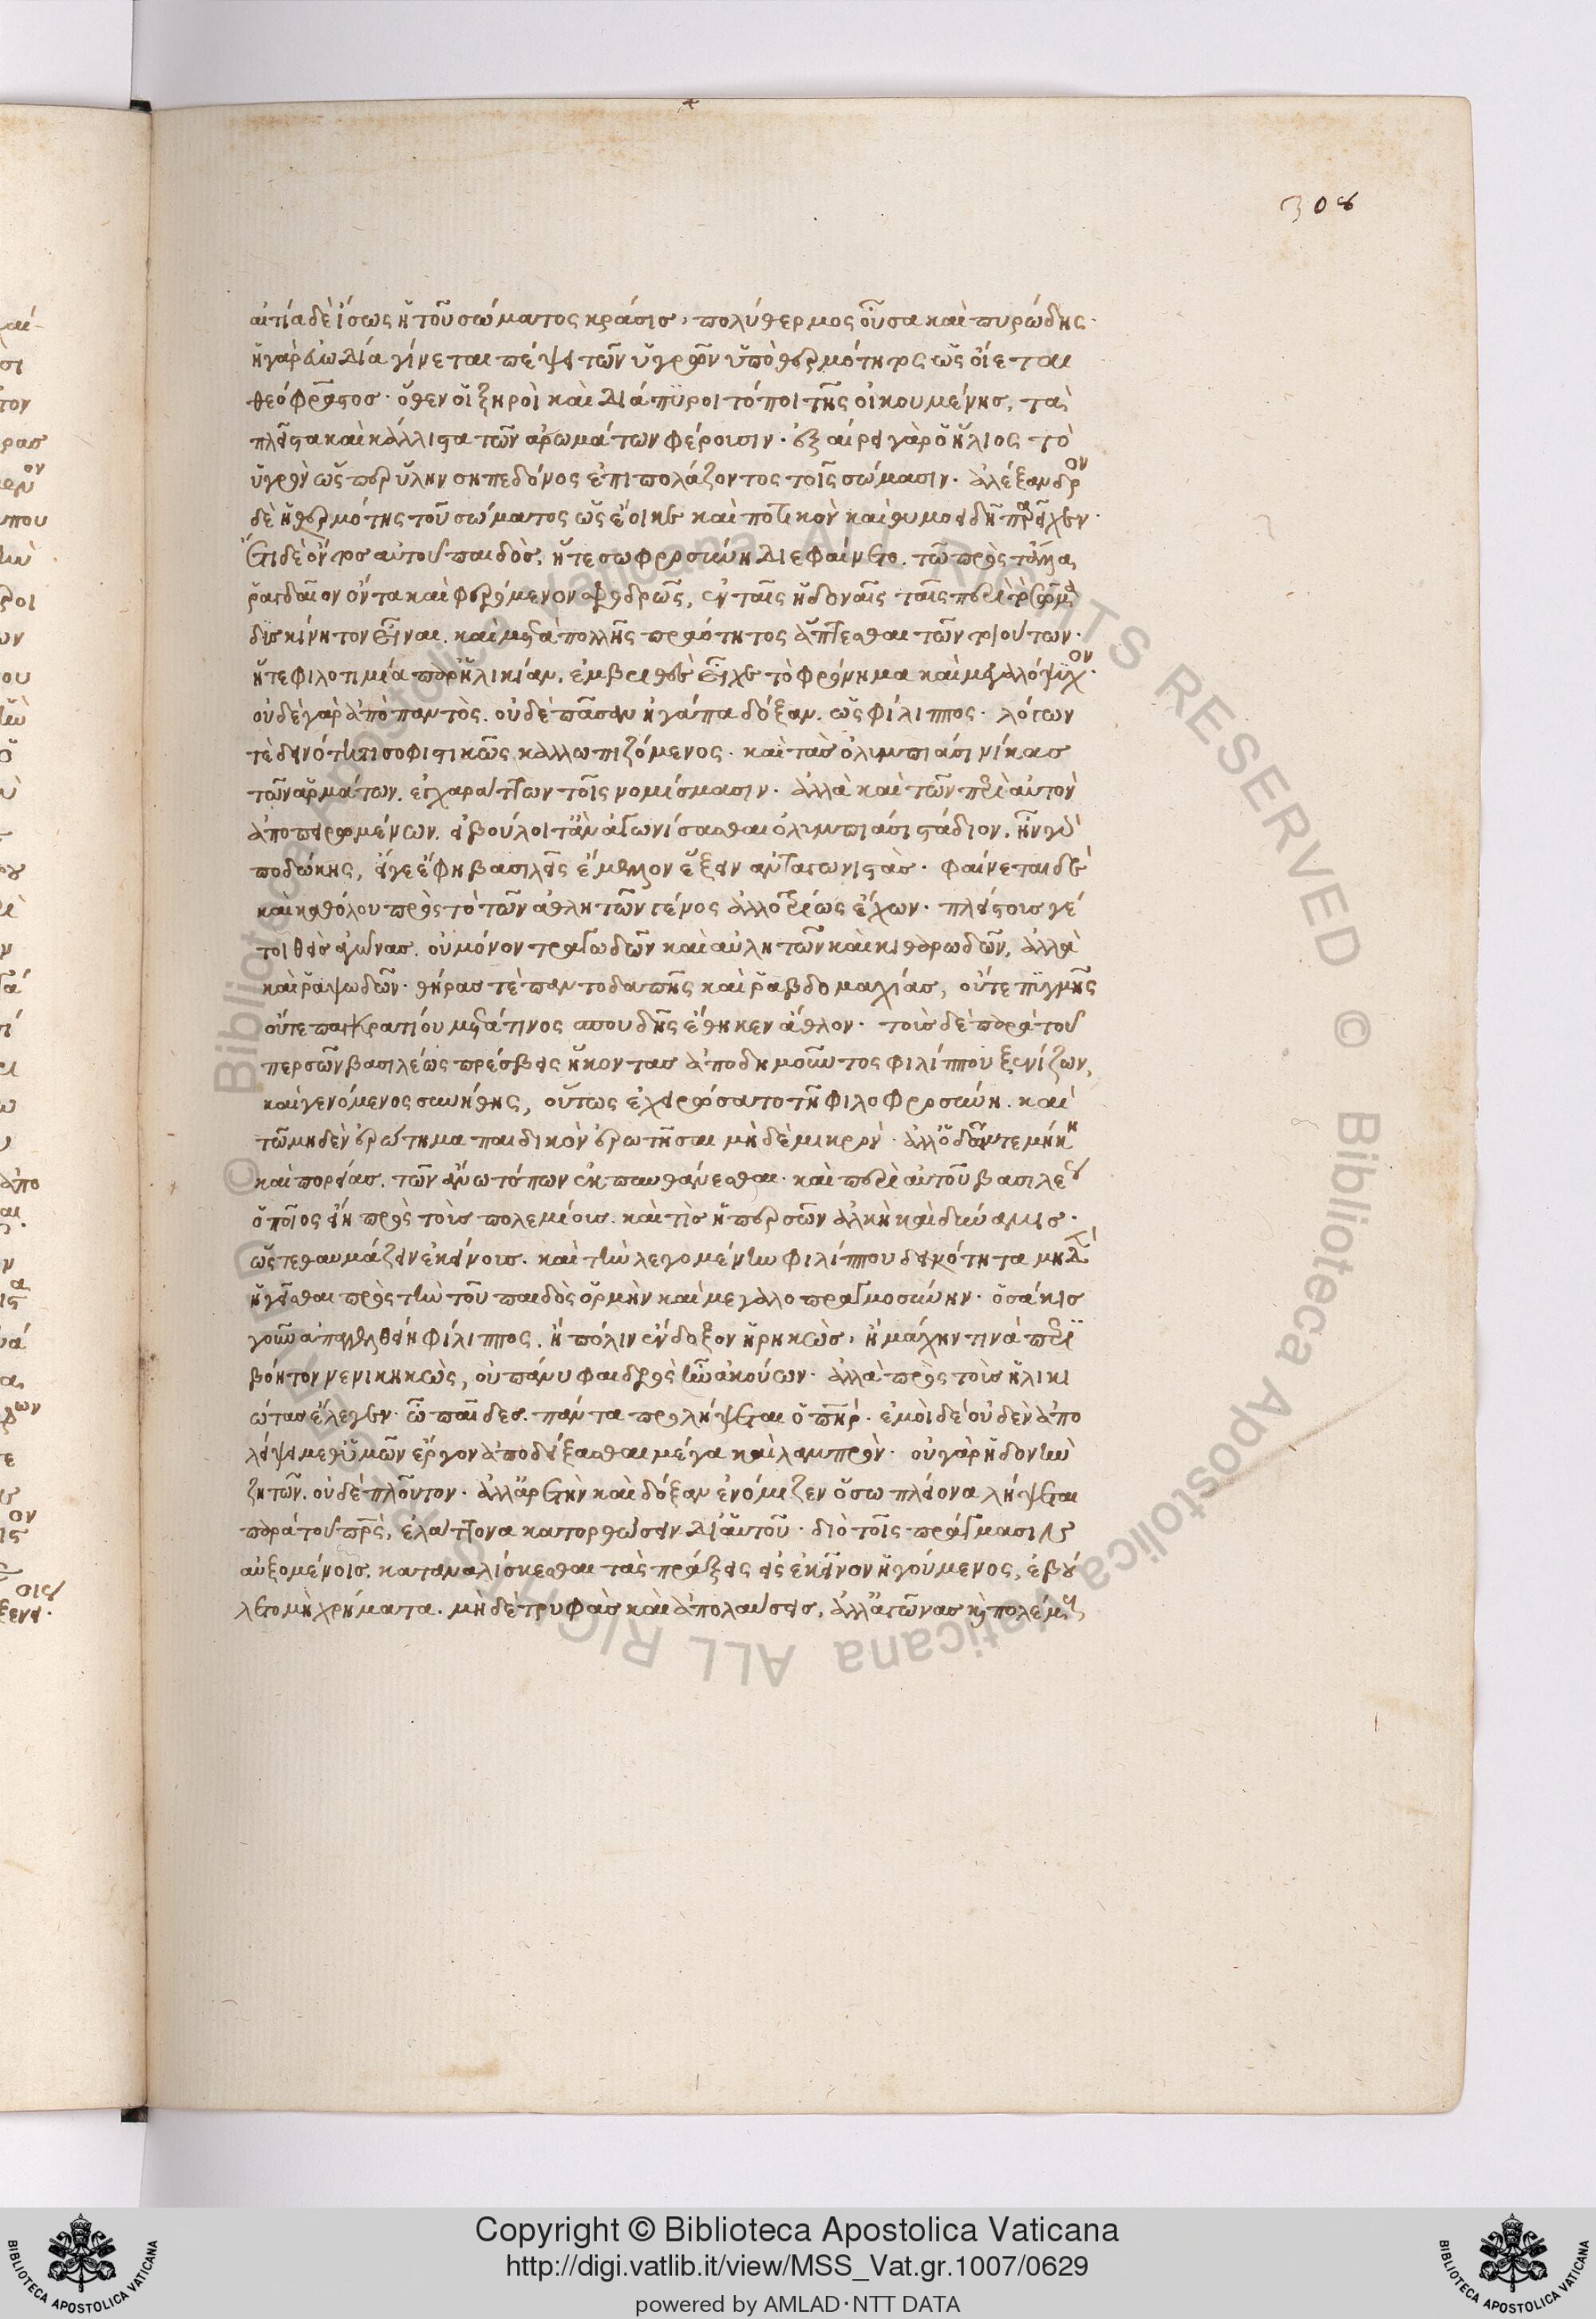 308
αἰτία δὲ ἴσως ἡ τοῦ σώματος κράσις, πολύθερμος οὖσα καὶ πυρώδης·
ἡ γὰρ εὐωδία γίνεται πέψει τῶν ὑγρῶν ὑπὸ θερμότητος ὡς οἴεται
θεόφραστος· ὅθεν οἱ ξηροὶ καὶ διάπυροι τόποι τῆς οἰκουμένης, τὰ
πλεῖστα καὶ κάλλιστα τῶν ἀρωμάτων φέρουσιν· ἐξαίρει γὰρ ὁ ἥλιος τὸ
ὑγρὸν ὥσπερ ὕλην σηπεδόνος ἐπιπολάζοντος τοῖς σώμασιν· ἀλέξανδρον
δὲ ἡ θερμότης τοῦ σώματος ὡς ἔοικε καὶ ποτικὸν καὶ θυμοειδῆ παρεῖχεν·
ἔτι δὲ ὄντος αὐτοῦ παιδὸς, ἥ τε σωφροσύνη διεφαίνετο. τῶ πρὸς τἄλλα
ῥαγδαῖον ὄντα καὶ φερόμενον σφοδρῶς, ἐν ταῖς ἡδοναῖς ταῖς περὶ τὸ σῶμα
δυσκίνητον εἶναι. καὶ μετὰ πολλῆς πραότητος ἅπτεσθαι τῶν τοιούτων·
ἥ τε φιλοτιμία παρ' ἡλικίαν, ἐμβριθὲς εἶχε τὸ φρόνημα καὶ μεγαλόψυχον·
οὐδὲ γὰρ ἀπὸ παντὸς. οὐδὲ πᾶσαν ἠγάπα δόξαν. ὡς φίλιππος· λόγων
τὲ δεινότητι σοφιστικῶς καλλωπιζόμενος· καὶ τὰς ὀλυμπιάσι νίκας
τῶν ἁρμάτων. ἐγχαράττων τοῖς νομίσμασιν· ἀλλὰ καὶ τῶν περὶ αὐτὸν
ἀποπειρωμένων. εἰ βούλοιτ' ἂν ἀγωνίσασθαι ὀλυμπιάσι στάδιον, ἦν γὰρ
ποδώκης, εἴγε ἔφη βασιλεῖς ἔμελλον ἕξειν ἀνταγωνιστάς· φαίνεται δὲ
καὶ καθόλου πρὸς τὸ τῶν ἀθλητῶν γένος ἀλλοτρίως ἔχων· πλείστους γέ
τοι θεὶς ἀγῶνας. οὐ μόνον τραγωδῶν καὶ αὐλητῶν καὶ κιθαρωδῶν, ἀλλὰ
καὶ ῥαψωδῶν· θήρας τὲ παντοδαπῆς καὶ ῥαβδομαχίας, οὔτε πυγμῆς
οὔτε παγκρατίου μετά τινος σπουδῆς ἔθηκεν ἆθλον· τοὺς δὲ παρὰ τοῦ
περσῶν βασιλέως πρέσβεις ἥκοντας ἀποδημοῦντος φιλίππου ξενίζων,
καὶ γενόμενος συνήθης, οὕτως ἐχειρώσατο τῆ φιλοφροσύνη. καὶ
τῶ μηδὲν ἐρώτημα παιδικὸν ἐρωτῆσαι μὴ δὲ μικρὸν· ἀλλ' ὁδῶν τε μήκη
καὶ πορείας. τῶν ἄνω τόπων ἐκπυνθάνεσθαι· καὶ περὶ αὐτοῦ βασιλέως
ὁποῖος εἴη πρὸς τοὺς πολεμίους. καὶ τὶς ἡ περσῶν ἀλκὴ καὶ δύναμις·
ὥστε θαυμάζειν ἐκείνους. καὶ τὴν λεγομένην φιλίππου δεινότητα μηδὲν
ἡγεῖσθαι πρὸς τὴν τοῦ παιδὸς ὁρμὴν καὶ μεγαλοπραγμοσύνην· ὁσάκις
γοῦν ἀπαγγελθείη φίλιππος. ἢ πόλιν ἔνδοξον ἡρηκὼς, ἢ μάχην τινὰ περι
βόητον νενικηκὼς, οὐ πάνυ φαιδρὸς ἦν ἀκούων· ἀλλὰ πρὸς τοὺς ἡλικι
ώτας ἔλεγεν· ὦ παῖδες. πάντα προλήψεται ὁ πατήρ· ἐμοὶ δὲ οὐδὲν ἀπο
λείψει μεθ' ὑμῶν ἔργον ἀποδείξασθαι μέγα καὶ λαμπρὸν· οὐ γὰρ ἡδονὴν
ζητῶν. οὐδὲ πλοῦτον· ἀλλ' ἀρετὴν καὶ δόξαν ἐνόμιζεν ὅσω πλείονα λήψεται
παρὰ τοῦ πατρὸς, ἐλάττονα κατορθώσειν δι' αὑτοῦ· διὸ τοῖς πράγμασιν
αὐξομένοις. καταναλίσκεσθαι τὰς πράξεις εἰς ἐκεῖνον ἡγούμενος, ἐβού
λετο μὴ χρήματα. μὴ δὲ τρυφὰς καὶ ἀπολαύσεις, ἀλλ' ἀγῶνας καὶ πολέμους
Copyright © Biblioteca Apostolica Vaticana
http://digi.vatlib.it/view/MSS_Vat.gr.1007/0629
powered by AMLAD·NTT DATA